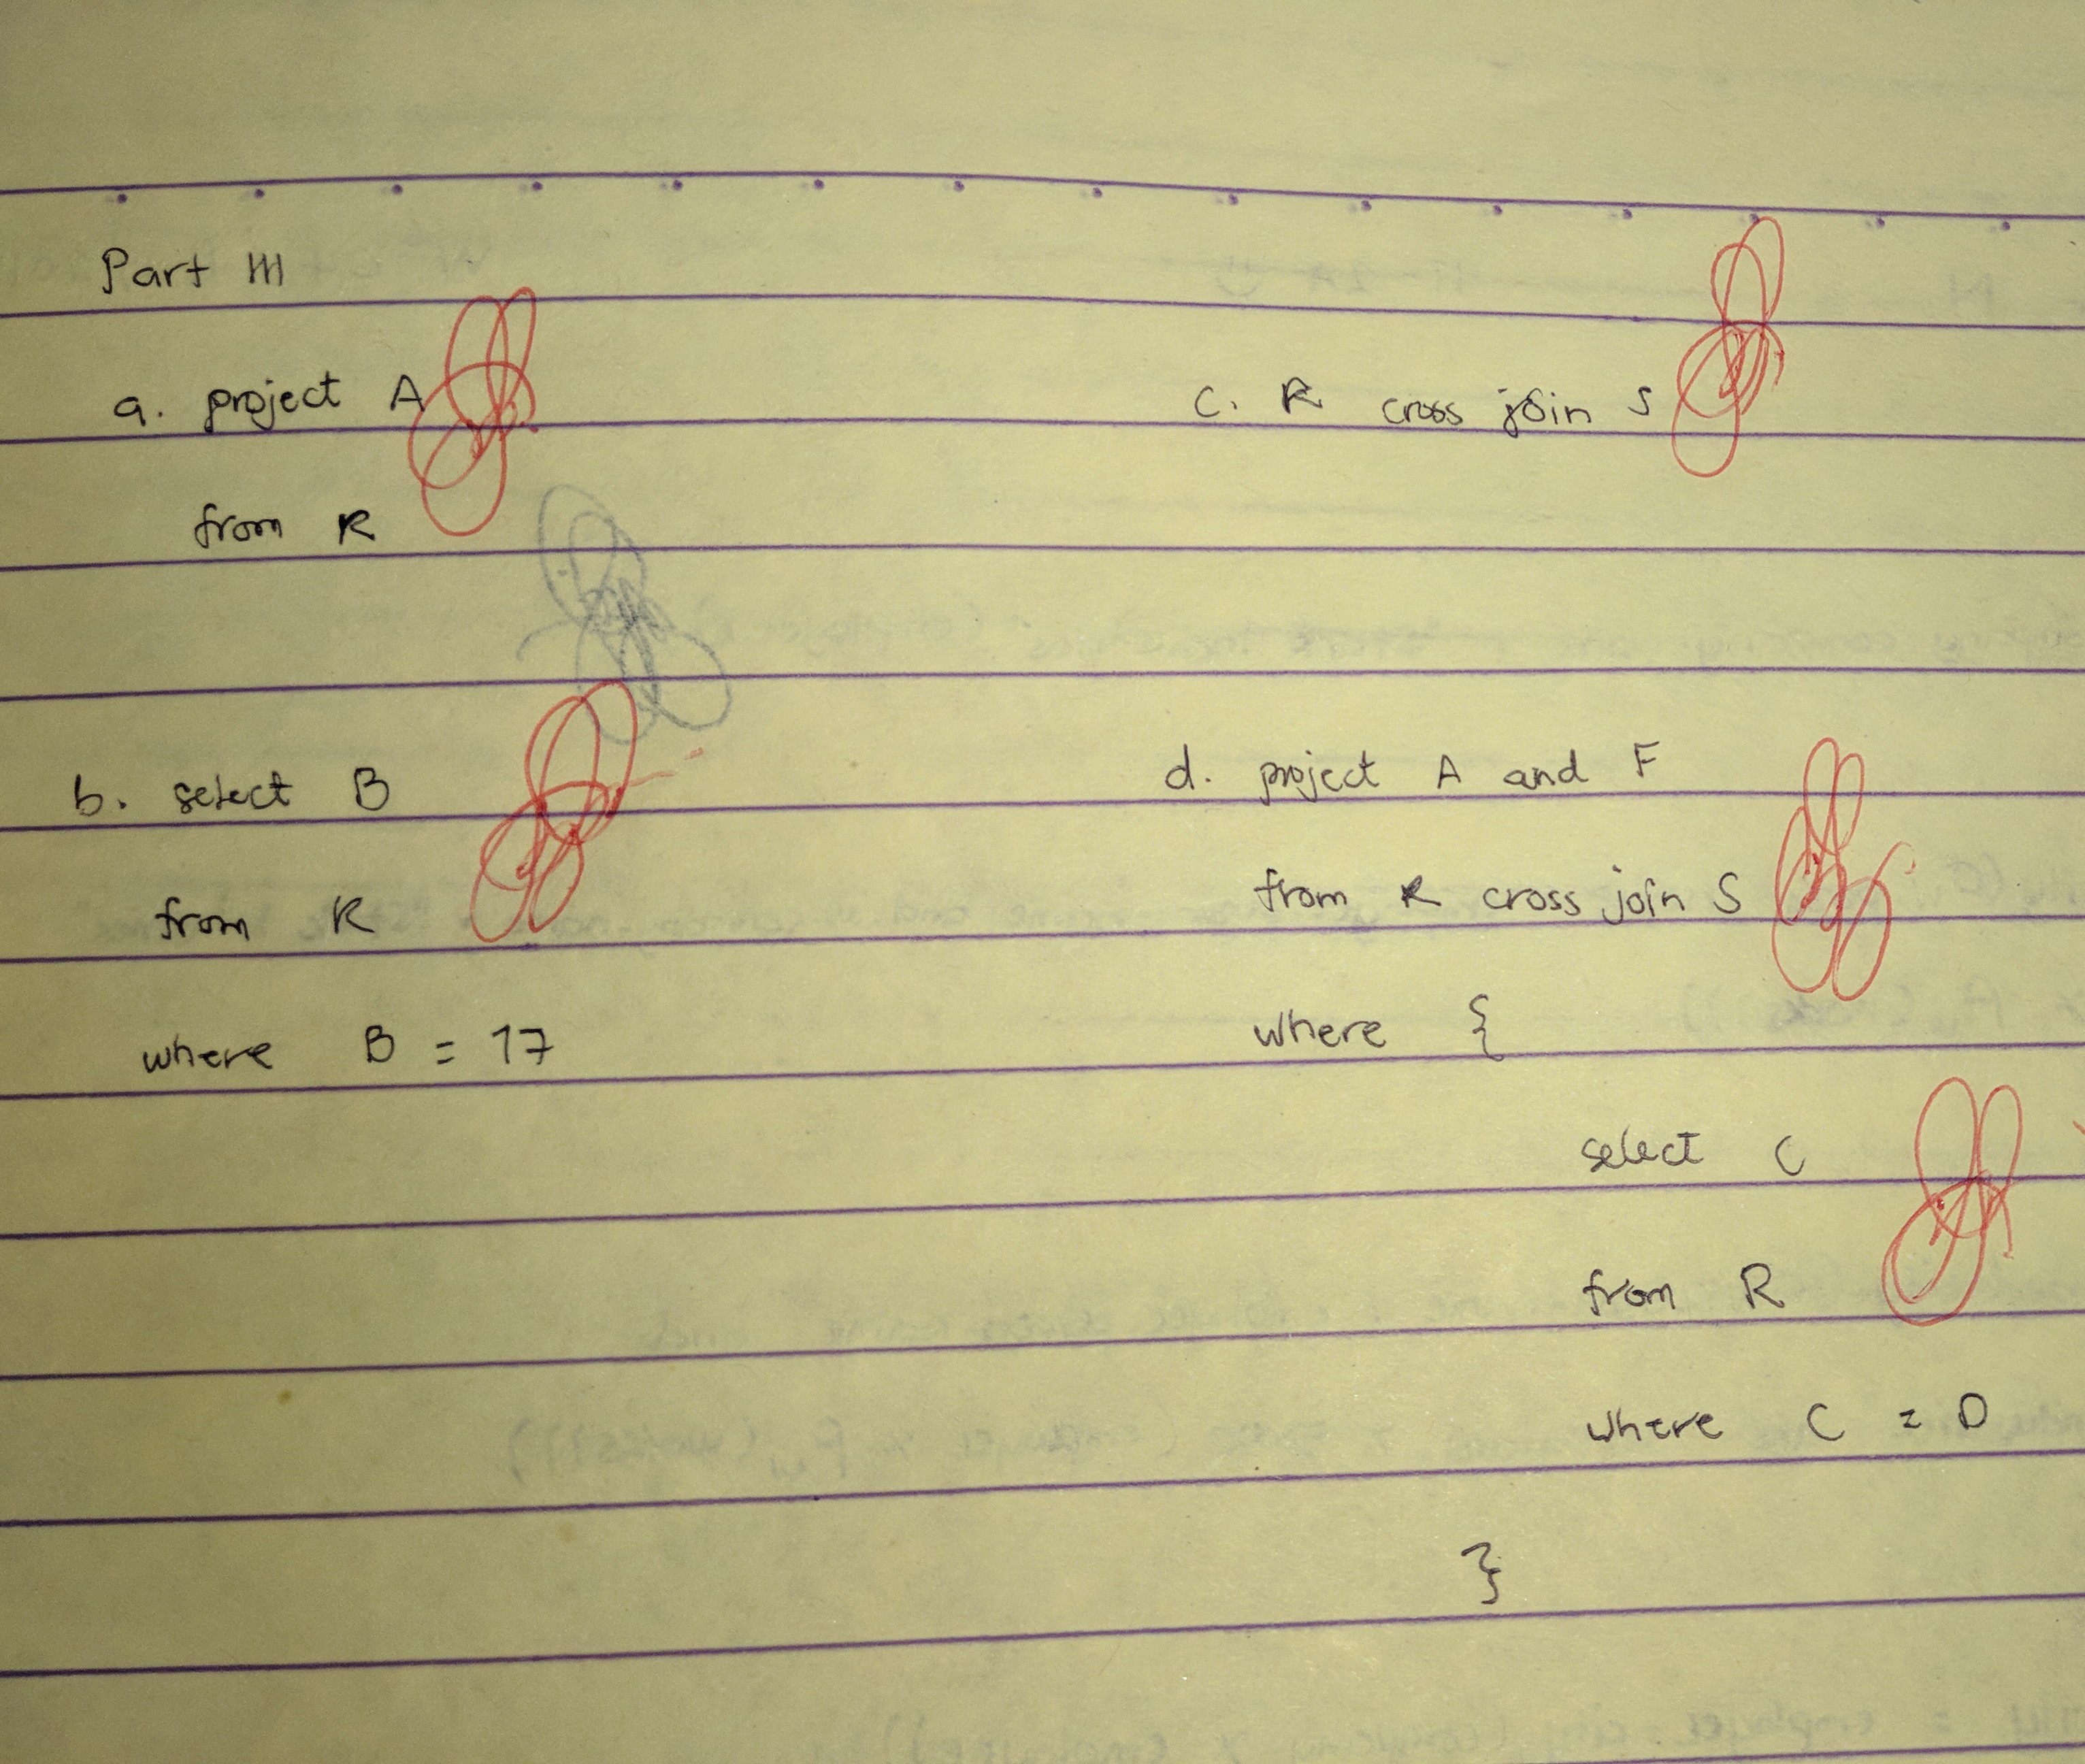 Part III
a. project A
from R
b. select B
from R
where B = 17
c. R cross join S
d. project A and F
from R cross join S
where {
select C
from R
where C = D
}